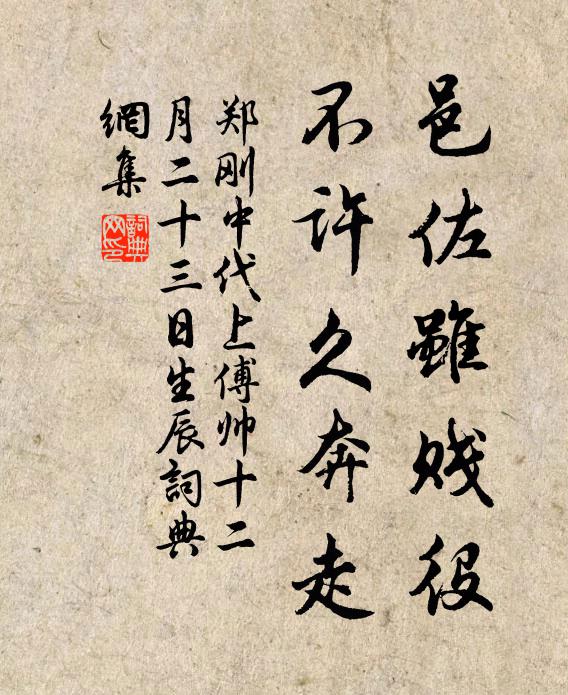 邑佐雖贱役
不许久奔走
郑刚中代上傅帅十二
月二十三日生辰詞典
網集
詞典
网印